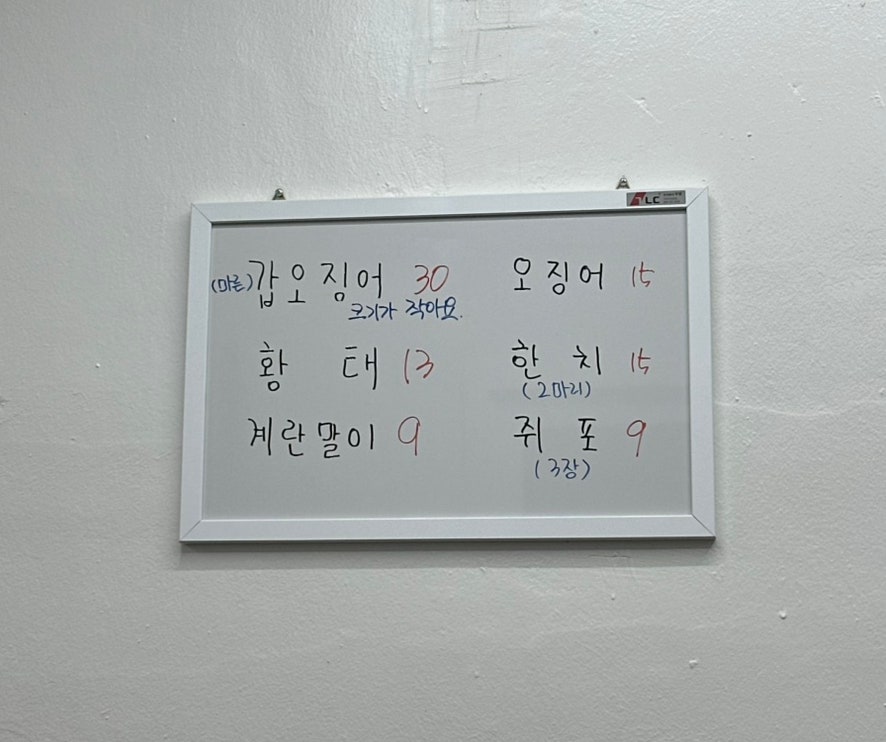 (마른)갑오징어 30
크기가 작아요.
오징어 15
황 태 13
한 치 15
(2마리)
계란말이 9
쥐 포 9
(3장)